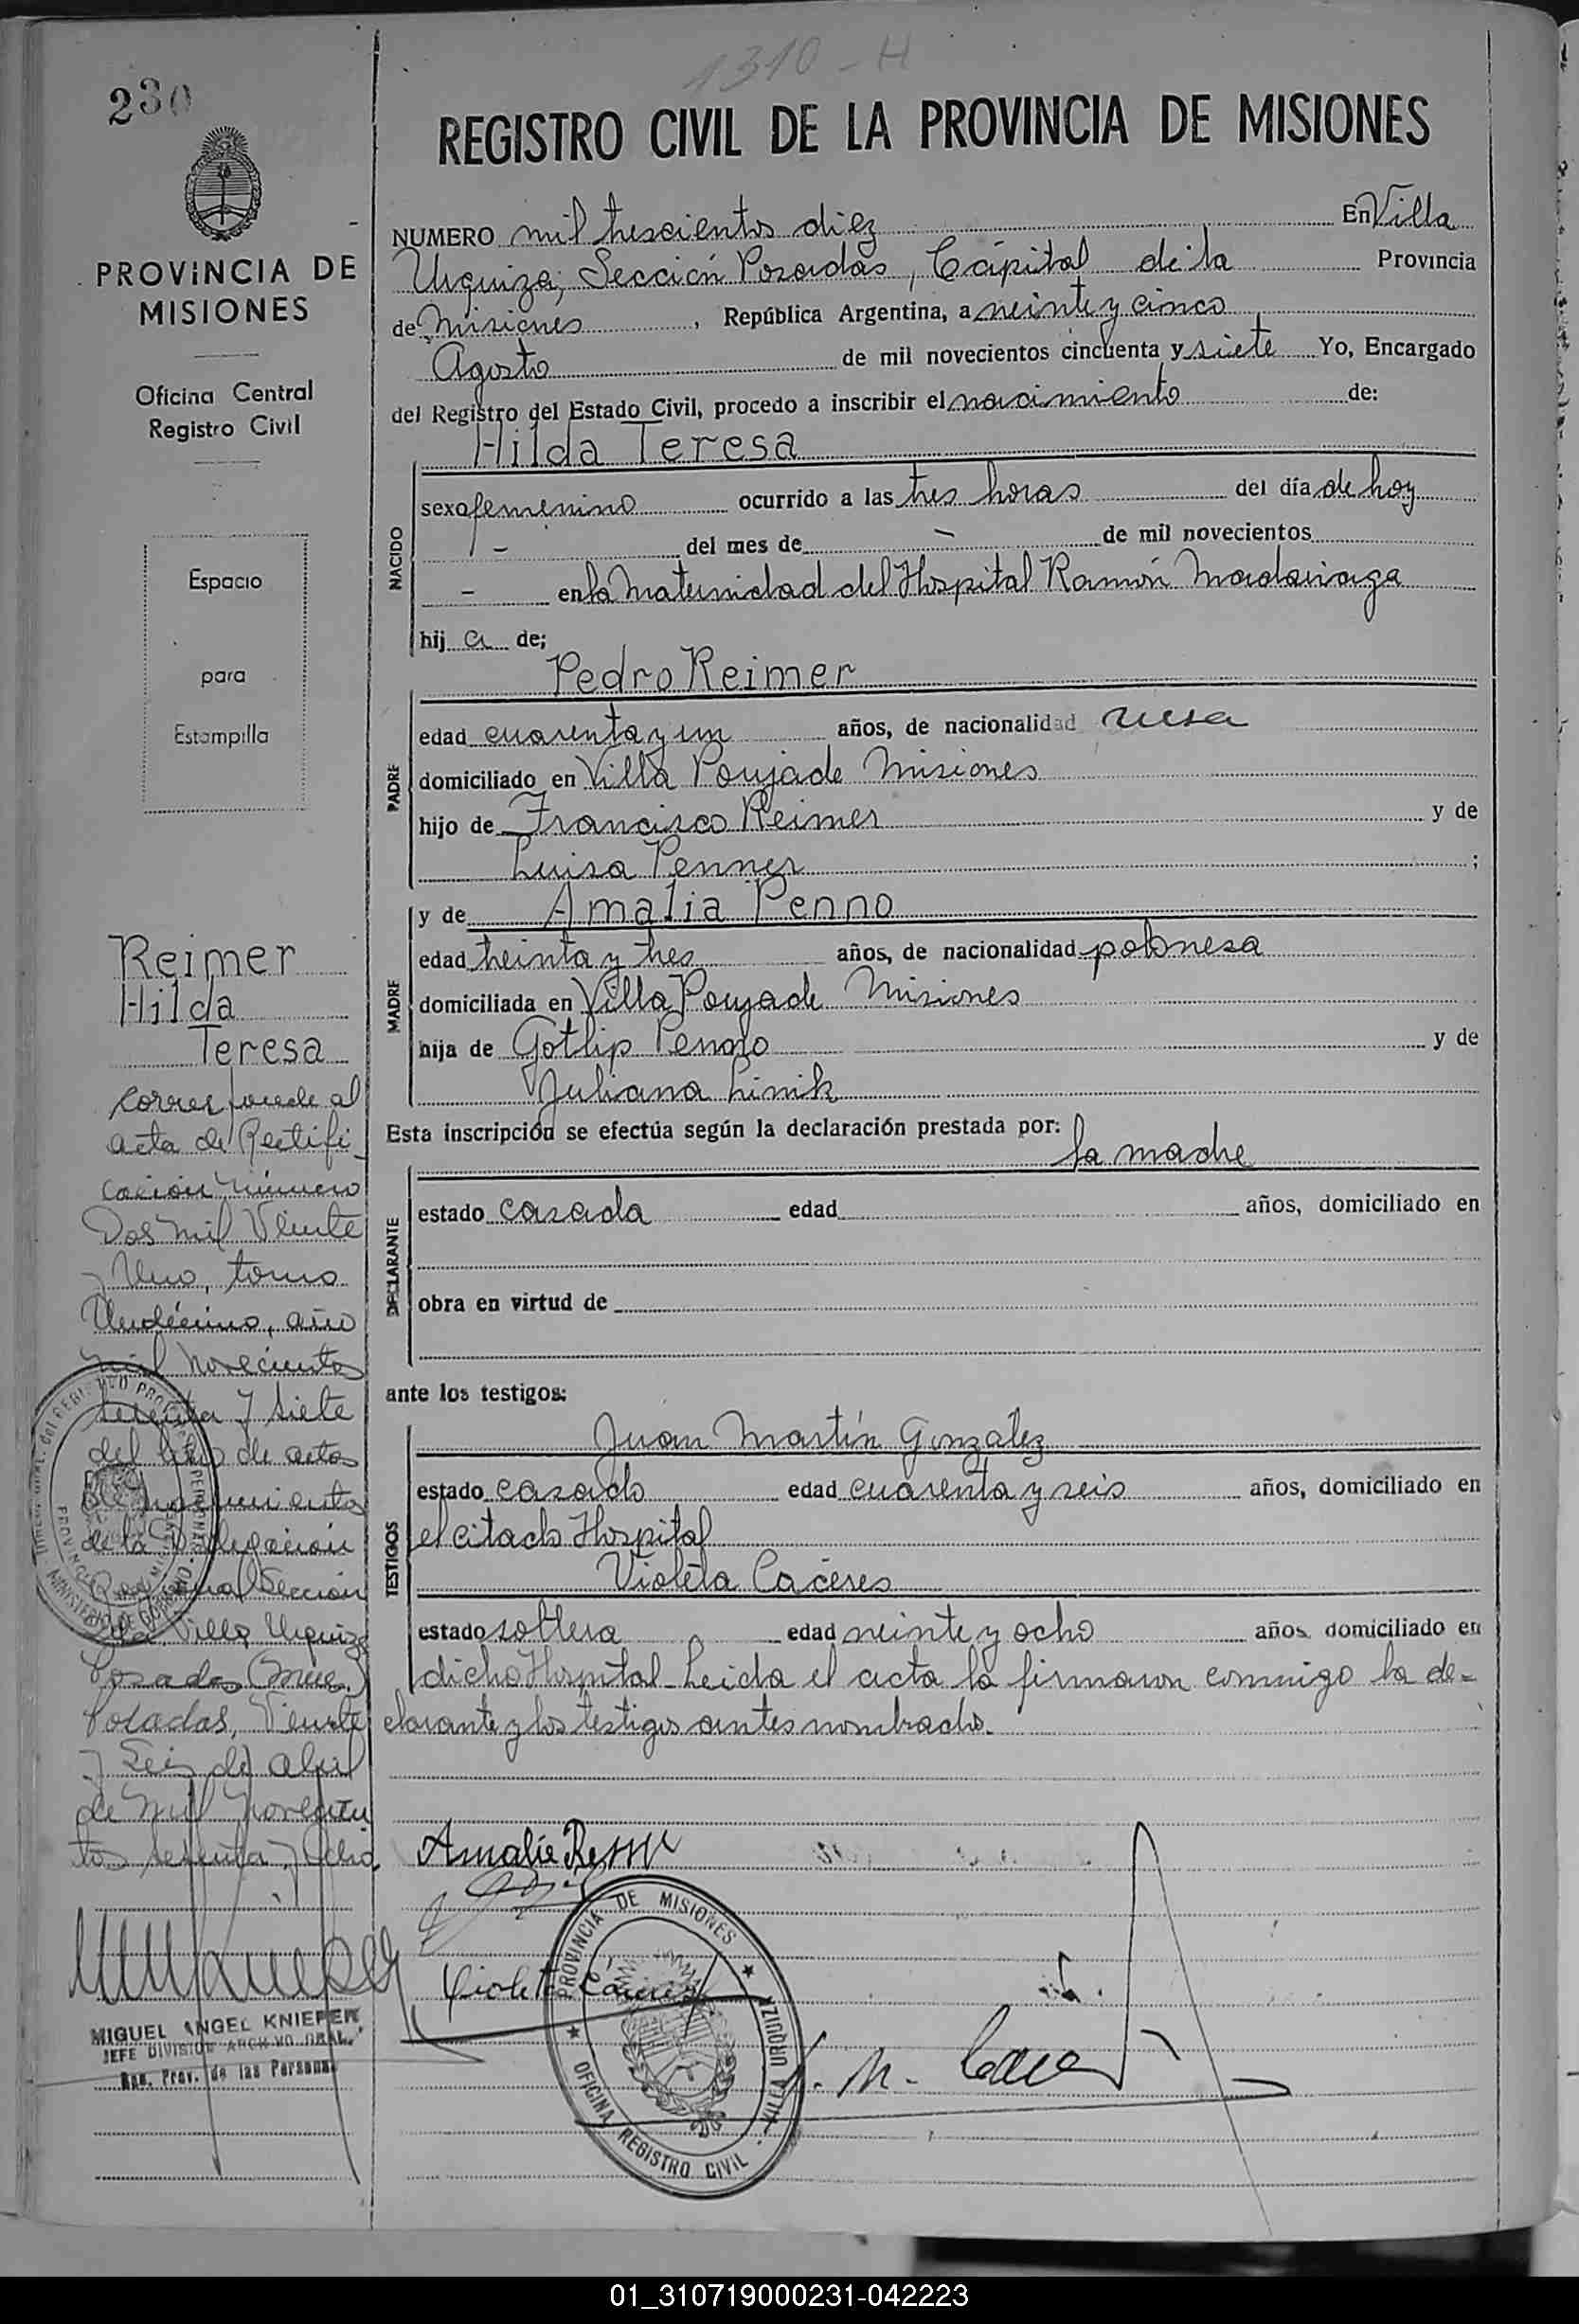 1310 - H
230
REGISTRO CIVIL DE LA PROVINCIA DE MISIONES
PROVINCIA DE
MISIONES
Oficina Central
Registro Civil
Espacio
para
Estampilla
NUMERO mil trescientos diez En Villa
Urquiza, Sección Posadas, Capital de la Provincia
de Misiones, República Argentina, a veinte y cinco
Agosto de mil novecientos cincuenta y siete Yo, Encargado
del Registro del Estado Civil, procedo a inscribir el nacimiento de:
Hilda Teresa
NACIDO
sexo femenino ocurrido a las tres horas del día de hoy
- del mes de - de mil novecientos
- en la Maternidad del Hospital Ramón Madariaga
hij a de;
Pedro Reimer
PADRE
edad cuarenta y un años, de nacionalidad rusa
domiciliado en Villa Poujade Misiones
hijo de Francisco Reimer y de
Luisa Penner ;
y de Amalia Penno
MADRE
edad treinta y tres años, de nacionalidad polonesa
domiciliada en Villa Poujade Misiones
hija de Gotlip Penno y de
Juliana Linik
Esta inscripción se efectúa según la declaración prestada por:
la madre
DECLARANTE
estado casada edad años, domiciliado en
obra en virtud de
ante los testigos:
TESTIGOS
Juan Martín González
estado casado edad cuarenta y seis años, domiciliado en
el citado Hospital
Violeta Cáceres
estado soltera edad veinte y ocho años domiciliado en
dicho Hospital - Leida el acta la firmaron conmigo la de=
clarante y los testigos antes nombrados.
Reimer
Hilda
Teresa
Corresponde al
acta de Rectifi
cación número
Dos mil Veinte
y Uno, tomo
Undécimo, año
mil novecientos
setenta y siete
del libro de actas
de nacimientos
de la Delegación
Regional Sección
Villa Urquiza
Posadas (Mnes.)
Posadas, Veinte
y Seis de abril
de Mil novecien
tos setenta y Ocho.
Violeta Cáceres
PROVINCIA DE MISIONES
OFICINA REGISTRO CIVIL
VILLA URQUIZA
MIGUEL ANGEL KNIEPER
JEFE DIVISION ARCHIVO GRAL.
Reg. Prov. de las Personas
01_310719000231-042223